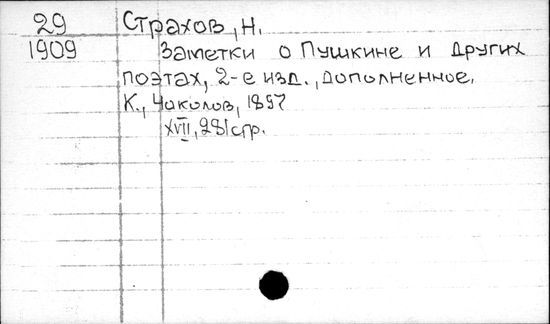 29 Страхов, Н.
1909 Заметки о Пушкине и других
поэтах, 2-е изд., дополненное.
К., Чоколов, 1897
XVII, 281 стр.